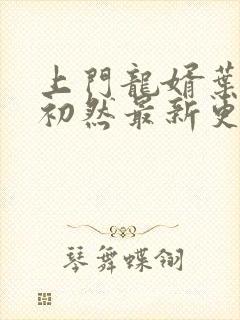 上門龍婿葉
初然最新更
琴舞蝶翎